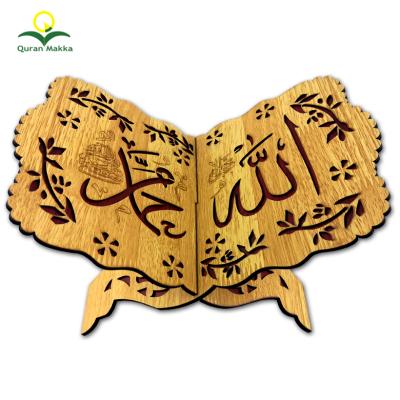 Quran Makka
الله
محمد